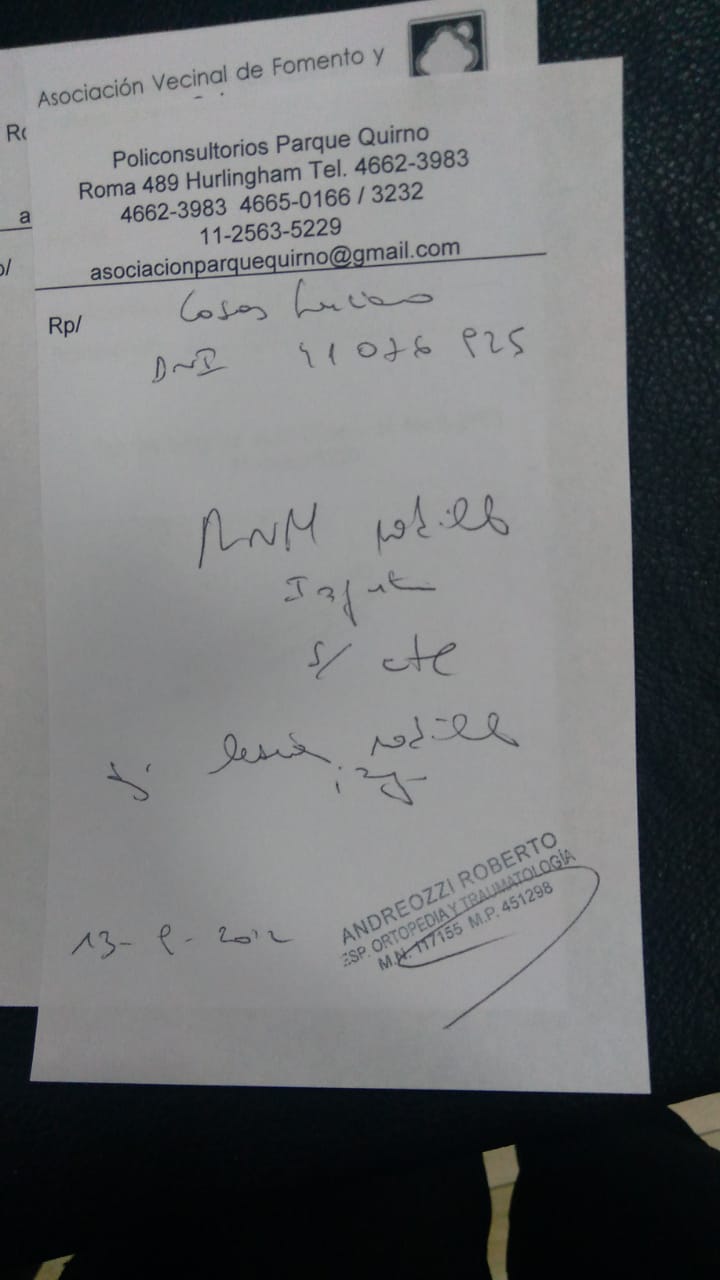 Asociación Vecinal de Fomento y
Policonsultorios Parque Quirno
Roma 489 Hurlingham Tel. 4662-3983
4662-3983 4665-0166 / 3232
11-2563-5229
asociacionparquequirno@gmail.com
Rp/
Casas Luciano
DNI 41 076 925
RNM rodilla
Izquierda
s/ cte
lesión rodilla
izq
13-
ANDREOZZI ROBERTO
ESP. ORTOPEDIA Y TRAUMATOLOGÍA
M.N. 117155 M.P. 451298